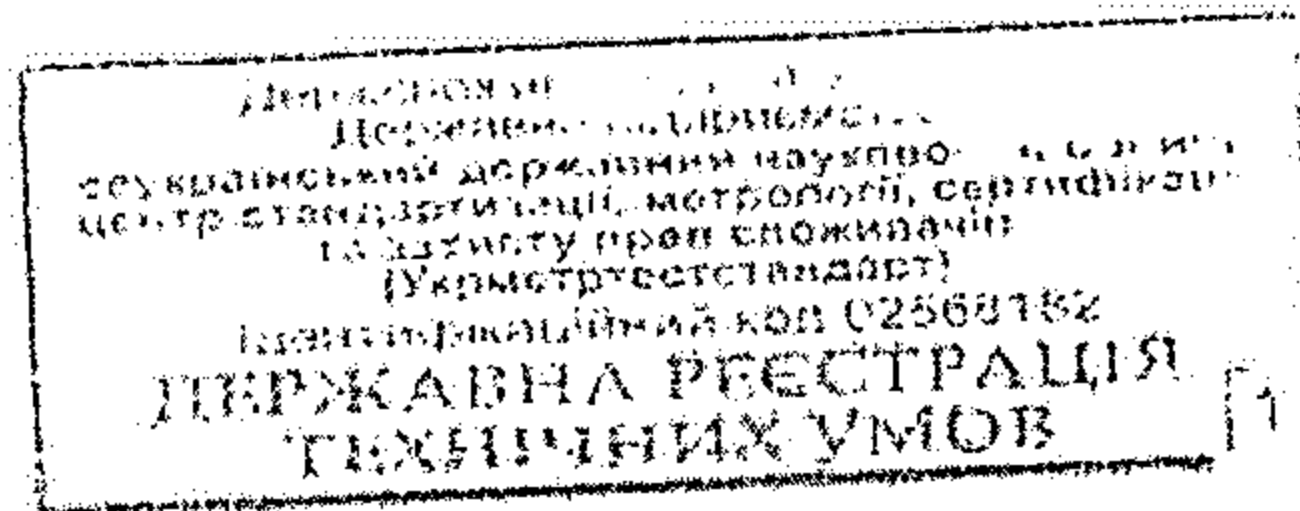 Державне підприємство
державний
центр стандартизації, метрології, сертифікації
та захисту прав споживачів
(Укрметртестстандарт)
Ідентифікаційний код 02568182
ДЕРЖАВНА РЕЄСТРАЦІЯ
ТЕХНІЧНИХ УМОВ